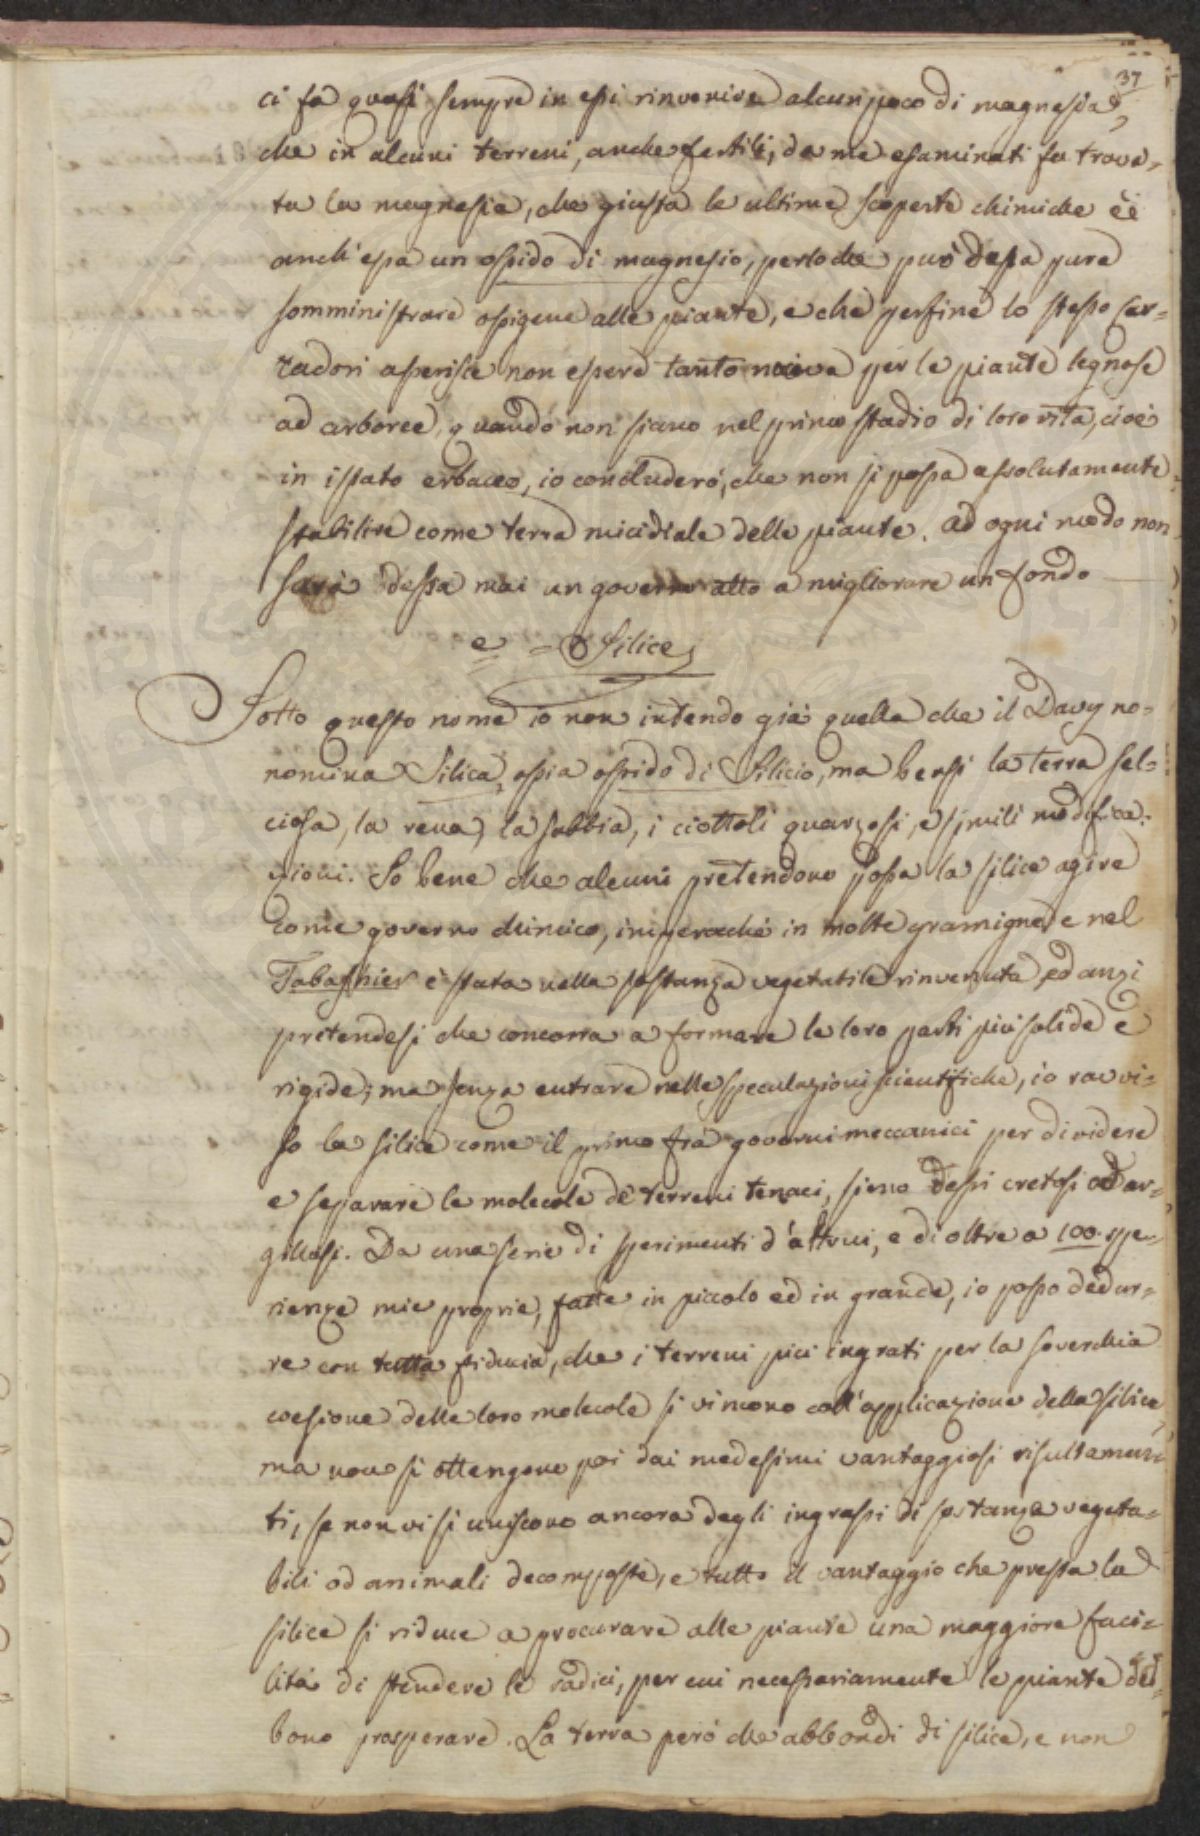 37
ci fà quasi sempre in essi rinvenire alcun poco di magnesia,
che in alcuni terreni, anche fertili, da me esaminati fu trova-
ta la magnesia, che giusta le ultime scoperte chimiche è
anch'essa un ossido di magnesio, perlochè può dessa pure
somministrare ossigene alle piante, e che perfine lo stesso Car-
radori asserisce non essere tanto nociva per le piante legnose
ad arboree, quando non siano nel primo stadio di loro vita, cioè
in istato erbaceo, io concluderò, che non si possa assolutamente
stabilire come terra micidiale delle piante. Ad ogni modo non
sarà dessa mai un governo atto a migliorare un fondo
e = Silice
Sotto questo nome io non intendo già quella che il Davy no-
nomina Silica, ossia ossido di Silicio, ma bensì la terra sel-
ciosa, la rena, la sabbia, i ciottoli quarzosi, e simili modifica-
zioni. So bene che alcuni pretendono possa la silice agire
come governo chimico, imperochè in molte gramigne, e nel
Tabashier è stata nella sostanza vegetabile rinvenuta, ed anzi
pretendesi che concorra a formare le loro parti più solide e
rigide; ma senza entrare nelle speculazioni scientifiche, io ravvi-
so la silice come il primo frà governi meccanici per dividere
e separare le molecole de' terreni tenaci, sieno dessi cretosi od ar-
gillosi. Da una serie di sperimenti d'altrui, e di oltre a 100. spe-
rienze mie proprie, fatte in piccolo ed in grande, io posso dedur-
re con tutta fiducia, che i terreni più ingrati per la soverchia
coesione delle loro molecole si vincono coll'applicazione della silice,
ma non si ottengono poi dai medesimi vantaggiosi risultamen-
ti, se non vi si uniscono ancora degli ingrassi di sostanze vegeta-
bili od animali decomposte, e tutto il vantaggio che pressa la
silice si riduce a procurare alle piante una maggiore faci-
lità di stendere le radici, per cui necessariamente le piante deb-
bono prosperare. La terra però che abbondi di silice, e non